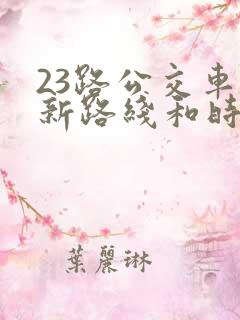 23路公交車
新路綫和時
葉麗琳